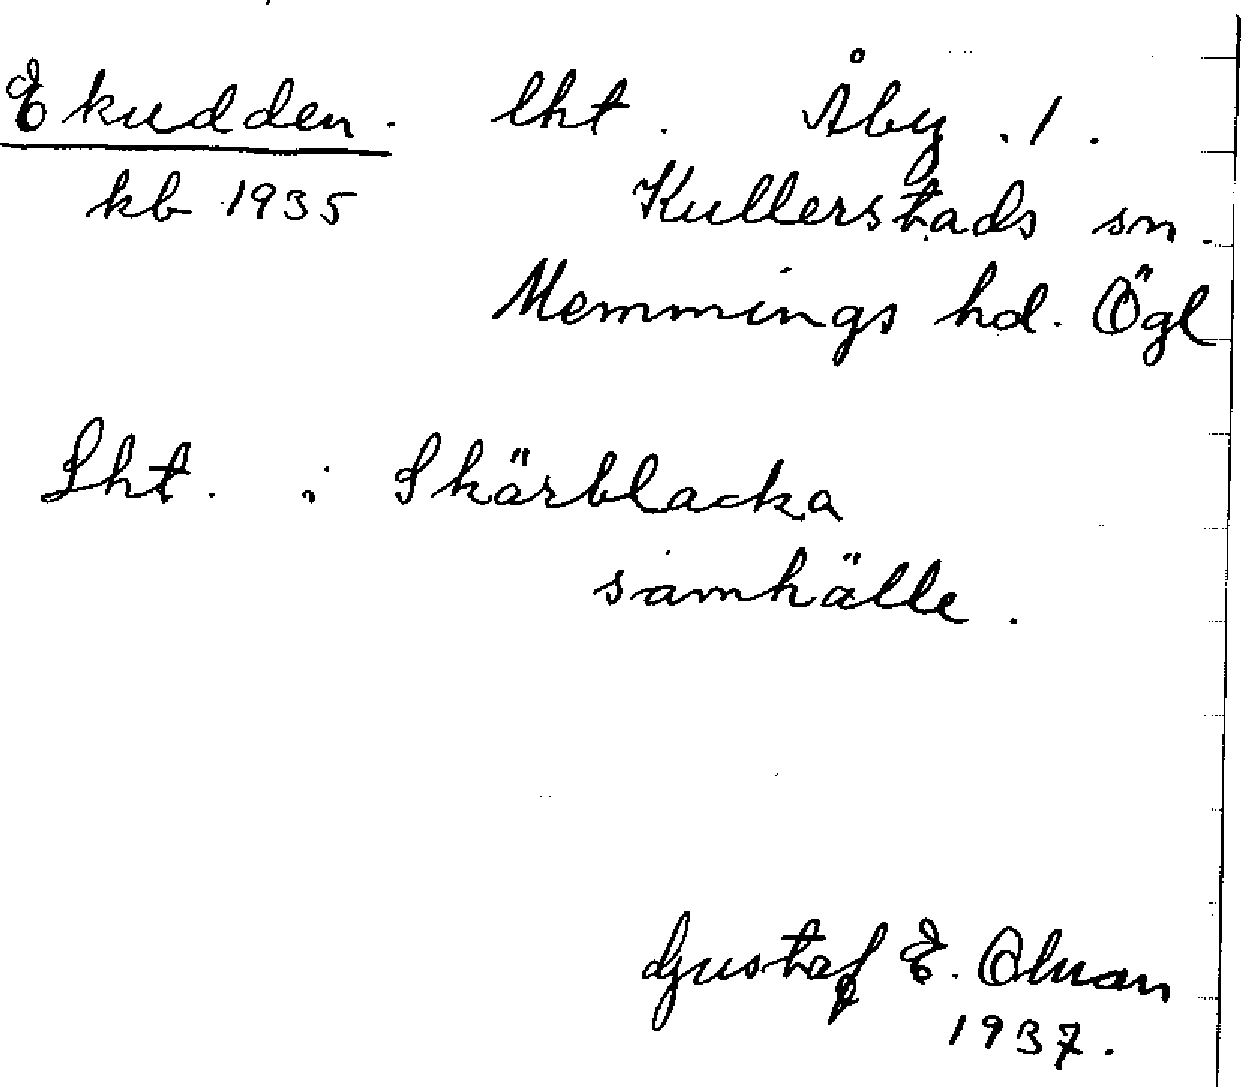 Ekudden. lht. Åby. 1.
kb 1935 Kullerstads sn.
Memmings hd. Ögl
Lht. i Skärblacka
samhälle.
Gustaf E. Olman
1937.